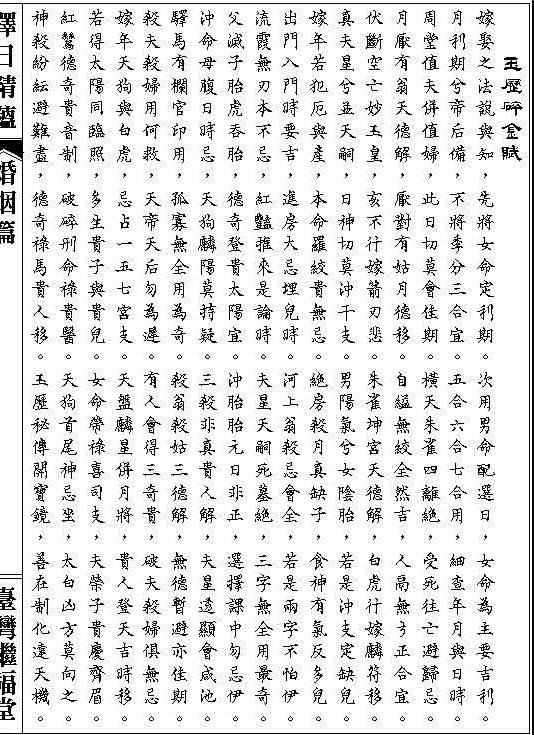 玉歷碎金賦
嫁娶之法說與知，先將女命定利期。次用男命配選日，女命為主要吉利。
月利期兮帝后備，不將季分三合宜。五合六合七合用，細查年月與日時。
周堂值夫併值婦，此日切莫會佳期。橫天朱雀四離絕，受死往亡避歸忌。
月厭有翁天德解，厭對有姑月德移。自縊無絞全然吉，人鬲無弓正合宜。
伏斷空亡妙玉皇，亥不行嫁箭刃悲。朱雀坤宮天德解，白虎行嫁麟符移。
真夫星兮並天嗣，日神切莫沖干支。男陽氣兮女陰胎，若是沖支定缺兒。
嫁年若犯厄與產，本命羅紋貴無忌。絕房殺月真缺子，食神有氣反多兒。
出門入門時要吉，進房大忌埋兒時。河上翁殺忌會全，若是兩字不怕伊。
流霞無刃本不忌，紅艷推來是論時。夫星天嗣死墓絕，三字無全用最奇。
父滅子胎虎吞胎，德奇登貴太陽宜。沖胎胎元日非正，選擇課中勿忌伊。
沖命母腹日時忌，天狗麟陽莫持疑。三殺非真貴人解，夫星透顯會咸池。
驛馬有欄官印用，孤寡無全用為奇。殺翁殺姑三德解，無德暫避亦佳期。
殺夫殺婦用何救，天帝天后勿為遲。有人會得三奇貴，破夫殺婦俱無忌。
嫁年天狗與白虎，忌占一五七宮支。天盤麟星併月將，貴人登天吉時移。
若得太陽同臨照，多生貴子與貴兒。女命榮祿喜司支，夫榮子貴慶齊眉。
紅鸞德奇貴音制，破碎刑命祿貴醫。天狗首尾神忌坐，太白凶方莫向之。
神殺紛紜避難盡，德奇祿馬貴人移。玉歷秘傳開寶鏡，善在制化達天機。
擇日精蘊
婚姻篇
臺灣繼福堂